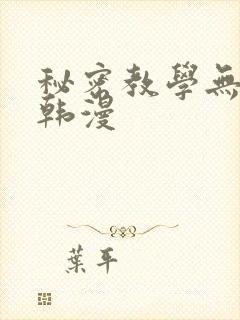 秘密教學無
韩漫
葉平